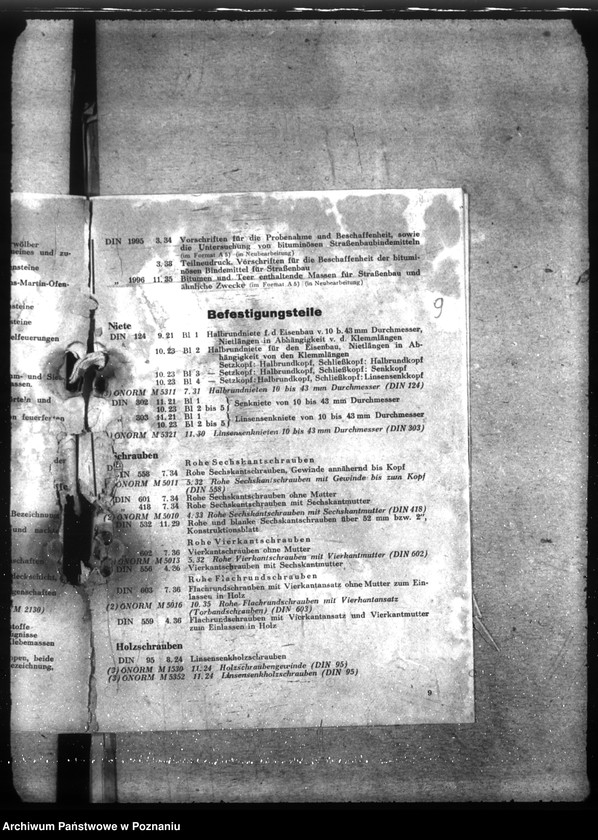 wölber
eines und zu-
gnsteine
ns-Martin-Ofen-
steine
steine
elfeuerungen
m- und
assen.
und
on feuerfesten
der
Bezeichnung
und
schaften
deckschicht,
genschaften
M 2130)
toffe
ignisse
lebemassen
ppen, beide
ezeichnung,
DIN 1995 3.34 Vorschriften für die Probenahme und Beschaffenheit, sowie
die Untersuchung von bituminösen Straßenbaubindemitteln
(im Format A 5) (in Neubearbeitung)
3.38 Teilneudruck, Vorschriften für die Beschaffenheit der bitumi-
nösen Bindemittel für Straßenbau
„ 1996 11.35 Bitumen und Teer enthaltende Massen für Straßenbau und
ähnliche Zwecke (im Format A 5) (in Neubearbeitung)
9
Befestigungsteile
Niete
DIN 124 9.21 Bl 1 Halbrundniete f. d Eisenbau v. 10 b. 43 mm Durchmesser,
Nietlängen in Abhängigkeit v. d. Klemmlängen
10.23 Bl 2 Halbrundniete für den Eisenbau, Nietlängen in Ab-
hängigkeit von den Klemmlängen
Setzkopf: Halbrundkopf, Schließkopf: Halbrundkopf
10.23 Bl 3 — Setzkopf: Halbrundkopf, Schließkopf: Senkkopf
10.23 Bl 4 — Setzkopf: Halbrundkopf, Schließkopf: Linsensenkkopf
ÖNORM M 5311 7.31 Halbrundnieten 10 bis 43 mm Durchmesser (DIN 124)
DIN 302 11.21 Bl 1
10.23 Bl 2 bis 5 } Senkniete von 10 bis 43 mm Durchmesser
303 11.21 Bl 1
10.23 Bl 2 bis 5 } Linsensenkniete von 10 bis 43 mm Durchmesser
ÖNORM M 5321 11.30 Linsensenknieten 10 bis 43 mm Durchmesser (DIN 303)
Schrauben
Rohe Sechskantschrauben
DIN 558 7.34 Rohe Sechskantschrauben, Gewinde annähernd bis Kopf
ÖNORM M 5011 5.32 Rohe Sechskantschrauben mit Gewinde bis zum Kopf
(DIN 558)
DIN 601 7.34 Rohe Sechskantschrauben ohne Mutter
418 7.34 Rohe Sechskantschrauben mit Sechskantmutter
(2) ÖNORM M 5010 4.33 Rohe Sechskantschrauben mit Sechskantmutter (DIN 418)
DIN 532 11.29 Rohe und blanke Sechskantschrauben über 52 mm bzw. 2",
Konstruktionsblatt
Rohe Vierkantschrauben
602 7.36 Vierkantschrauben ohne Mutter
ÖNORM M 5013 5.32 Rohe Vierkantschrauben mit Vierkantmutter (DIN 602)
DIN 556 4.26 Vierkantschrauben mit Sechskantmutter
Rohe Flachrundschrauben
DIN 603 7.36 Flachrundschrauben mit Vierkantansatz ohne Mutter zum Ein-
lassen in Holz
(2) ÖNORM M 5016 10.35 Rohe Flachrundschrauben mit Vierkantansatz
(Torbandschrauben) (DIN 603)
DIN 559 4.36 Flachrundschrauben mit Vierkantansatz und Vierkantmutter
zum Einlassen in Holz
Holzschrauben
DIN 95 8.24 Linsensenkholzschrauben
(3) ÖNORM M 1530 11.24 Holzschraubengewinde (DIN 95)
(3) ÖNORM M 5352 11.24 Linsensenkholzschrauben (DIN 95)
9
Archiwum Państwowe w Poznaniu